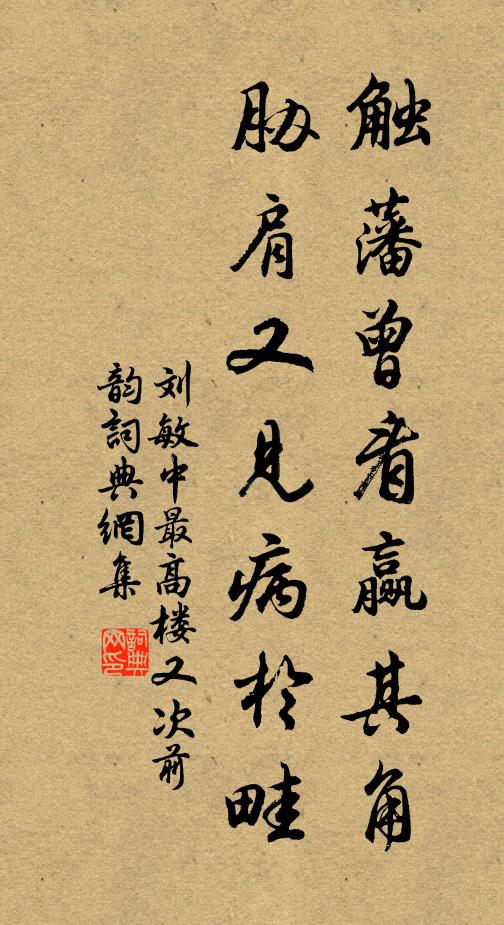 触藩曾看羸其角
胁肩又見病於畦
刘敏中最高楼又次前
韵詞典網集
詞典网印